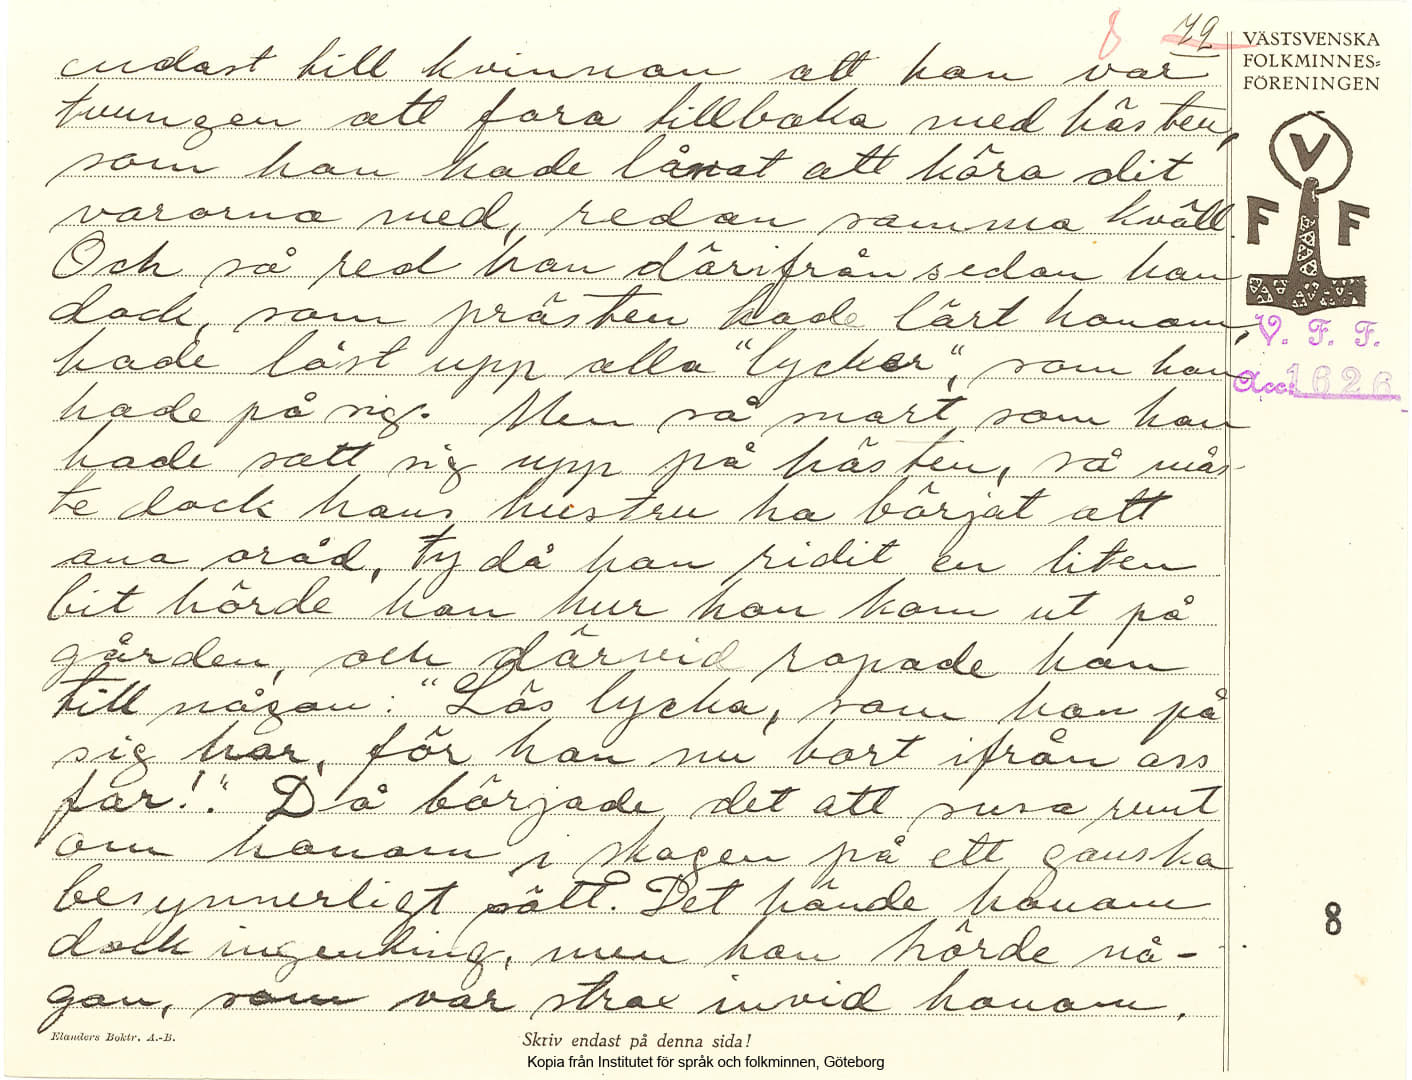 8 72
VÄSTSVENSKA
FOLKMINNES=
FÖRENINGEN
V
F F
V. F. F.
Acc: 1626
endast till kvinnan att han var
tvungen att fara tillbaka med hästen,
som han hade lånat att köra dit
varorna med, redan samma kväll.
Och så red han därifrån sedan han
dock, som prästen hade lärt honom,
hade låst upp alla "lyckor", som han
hade på sig. Men så snart som han
hade satt sig upp på hästen, så mås-
te dock hans hustru ha börjat att
ana oråd, ty då han ridit en liten
bit hörde han hur hon kom ut på
gården, och därvid ropade hon
till någon: "Lås lycka, som han på
sig har, för han nu bort ifrån oss
far!" Då började det att susa runt
om honom i skogen på ett ganska
besynnerligt sätt. Det hände honom
dock ingenting, men han hörde nå-
gon, som var strax invid honom,
8
Elanders Boktr. A.-B.
Skriv endast på denna sida!
Kopia från Institutet för språk och folkminnen, Göteborg